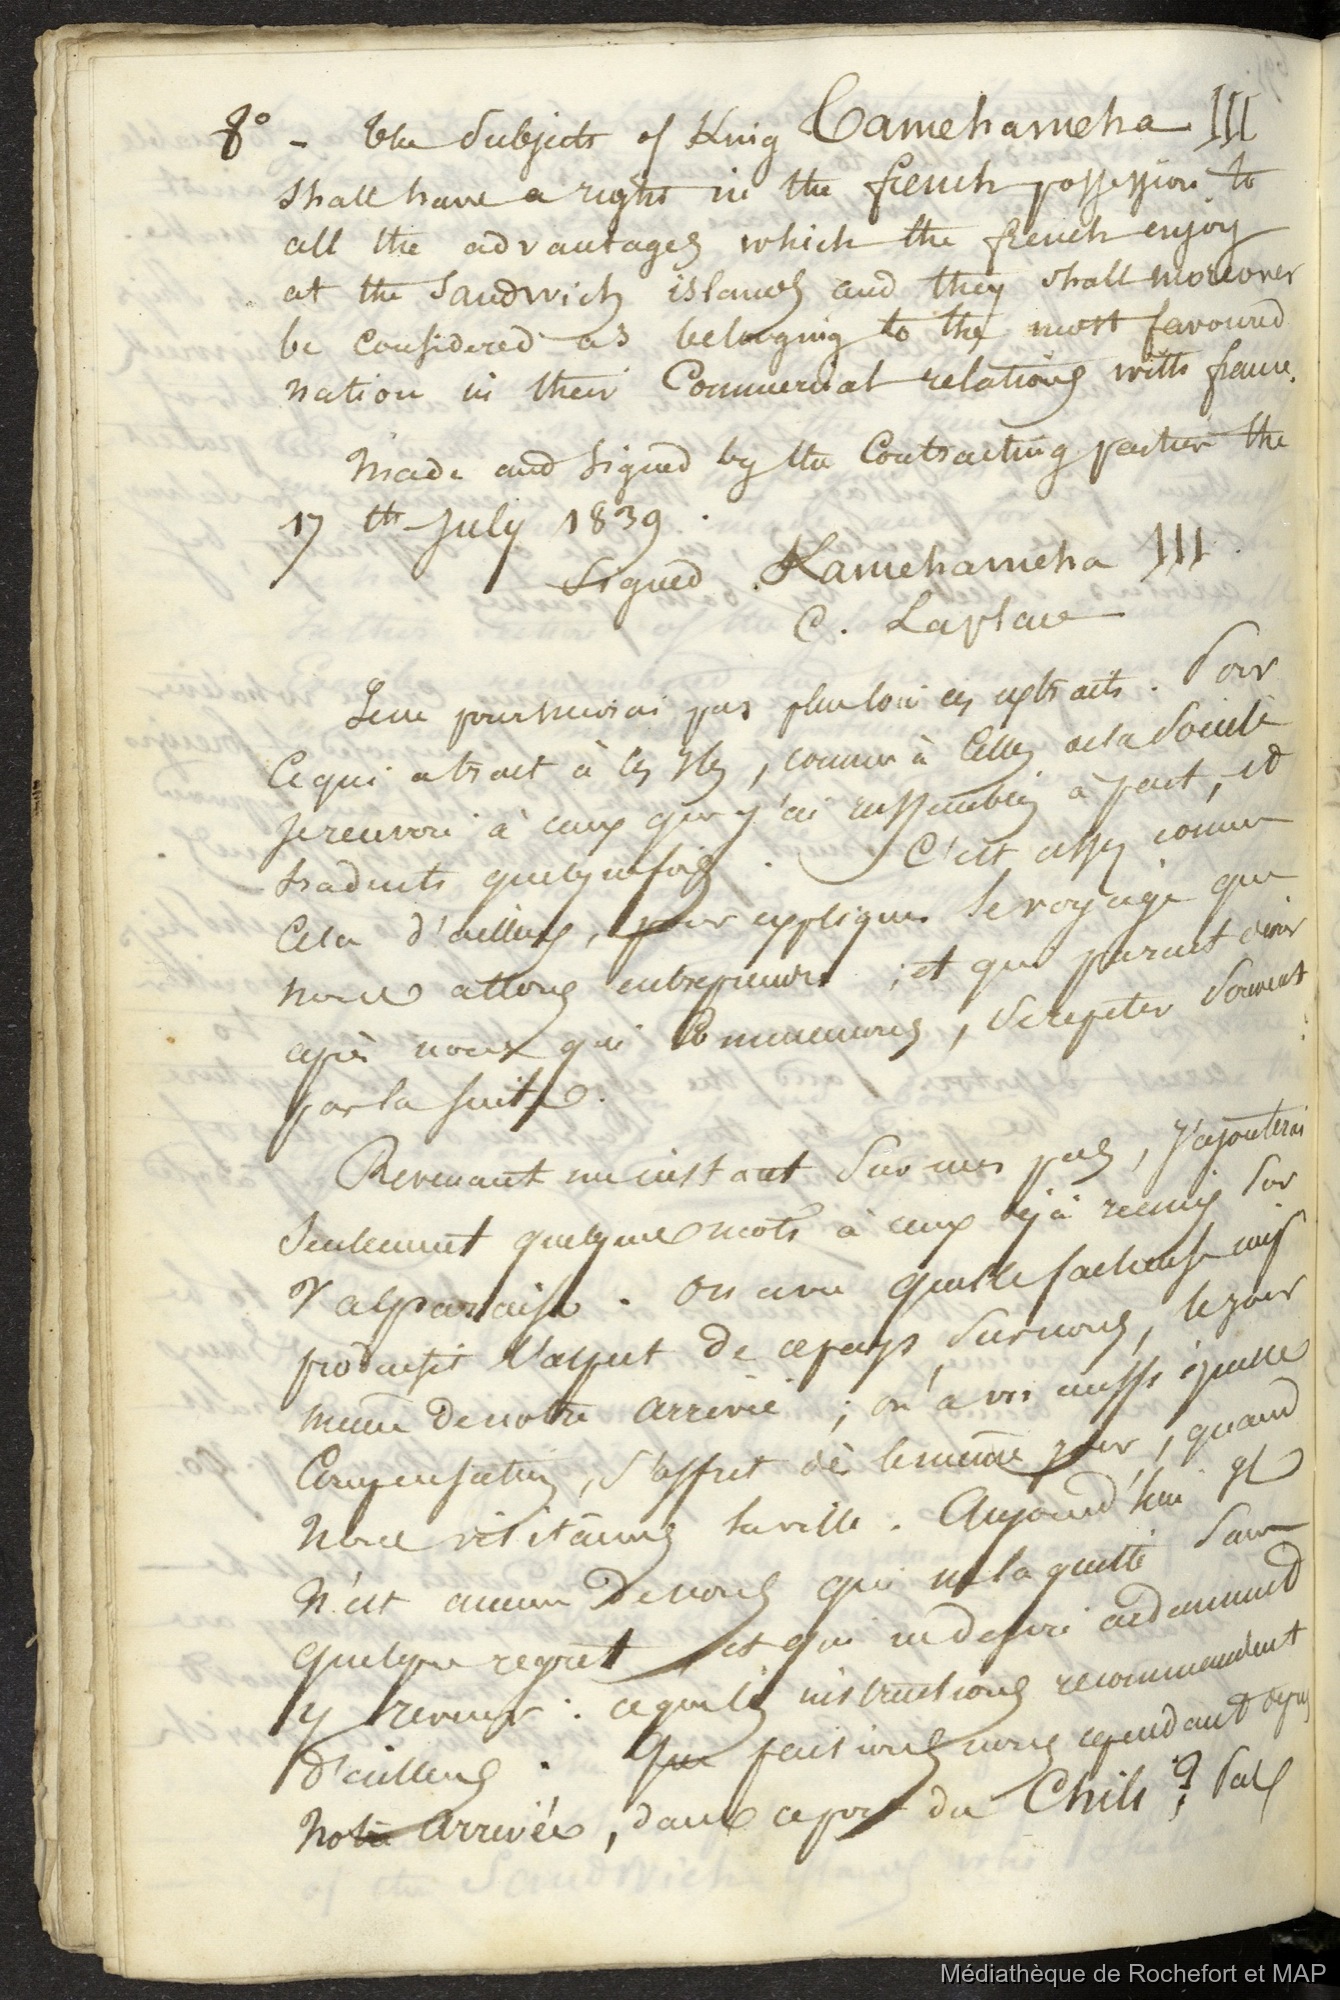 8° - The Subjects of King Tamehameha III
shall have a right in the french possession to
all the advantages which the french enjoy
at the Sandwich islands and they shall moreover
be Considered as belonging to the most favoured
nation in their Commercial relations with france.
Made and Signed by the Contracting parties the
17 th July 1839.
Signed. Kamehameha III.
C. Laplace
Je ne poursuivrai pas plus loin ces extraits. Pour
Ce qui a trait à ces Iles, comme à Celles de la Société
je renvoie à ceux que j'ai rassemblés à part, et
traduits quelquefois. C'est assez comme
Cela d'ailleurs, pour expliquer le voyage que
nous allons entreprendre; et qui parait devoir
après nous qui Commencons, se répeter Souvent
par la suite.
Revenant un instant Sur mes pas, J'ajouterai
Seulement quelques mots à ceux déjà réunis Sur
Valparaiso. On a vu quelle facheuse
produisit l'aspect de ce pays Sur nous, le jour
même de notre arrivée; on a vu aussi quelle
Compensation, s'offrit dès le même jour, quand
nous visitâmes la ville. Aujourd'hui il
n'est aucun de nous qui ne la quitte Sans
quelque regret et qui ne desire ardemment
y revenir: ce que les instructions recommandent
d'ailleurs. Que faisions nous cependant depuis
Notre arrivée, dans ce port du Chili?
Médiathèque de Rochefort et MAP